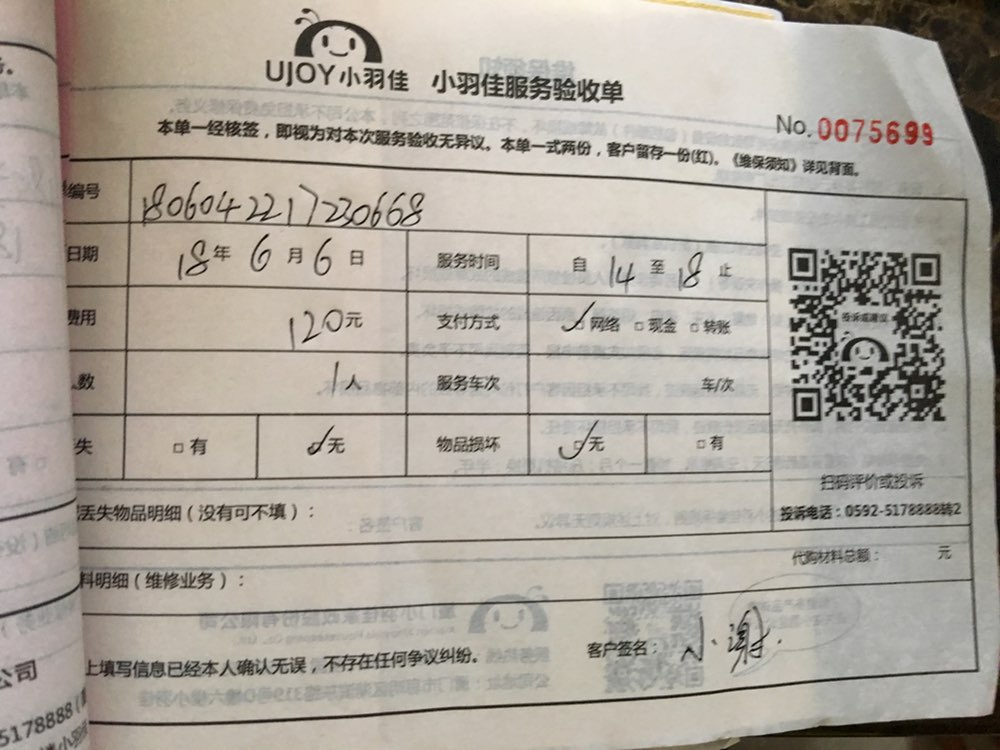 UJOY小羽佳 小羽佳服务验收单
No.0075699
本单一经核签，即视为对本次服务验收无异议。本单一式两份，客户留存一份(红)。《维保须知》详见背面。
编号 180604221723 0668
日期 18年6月6日 服务时间 自14至18止
费用 120元 支付方式 ☑网络 □现金 □转账
人数 1人 服务车次 车/次
失 □有 ☑无 物品损坏 ☑无 □有
投诉或建议
扫码评价或投诉
投诉电话：0592-5178888转2
丢失物品明细（没有可不填）：
代购材料总额： 元
料明细（维修业务）：
上填写信息已经本人确认无误，不存在任何争议纠纷。 客户签名：小谢
公司
5178888